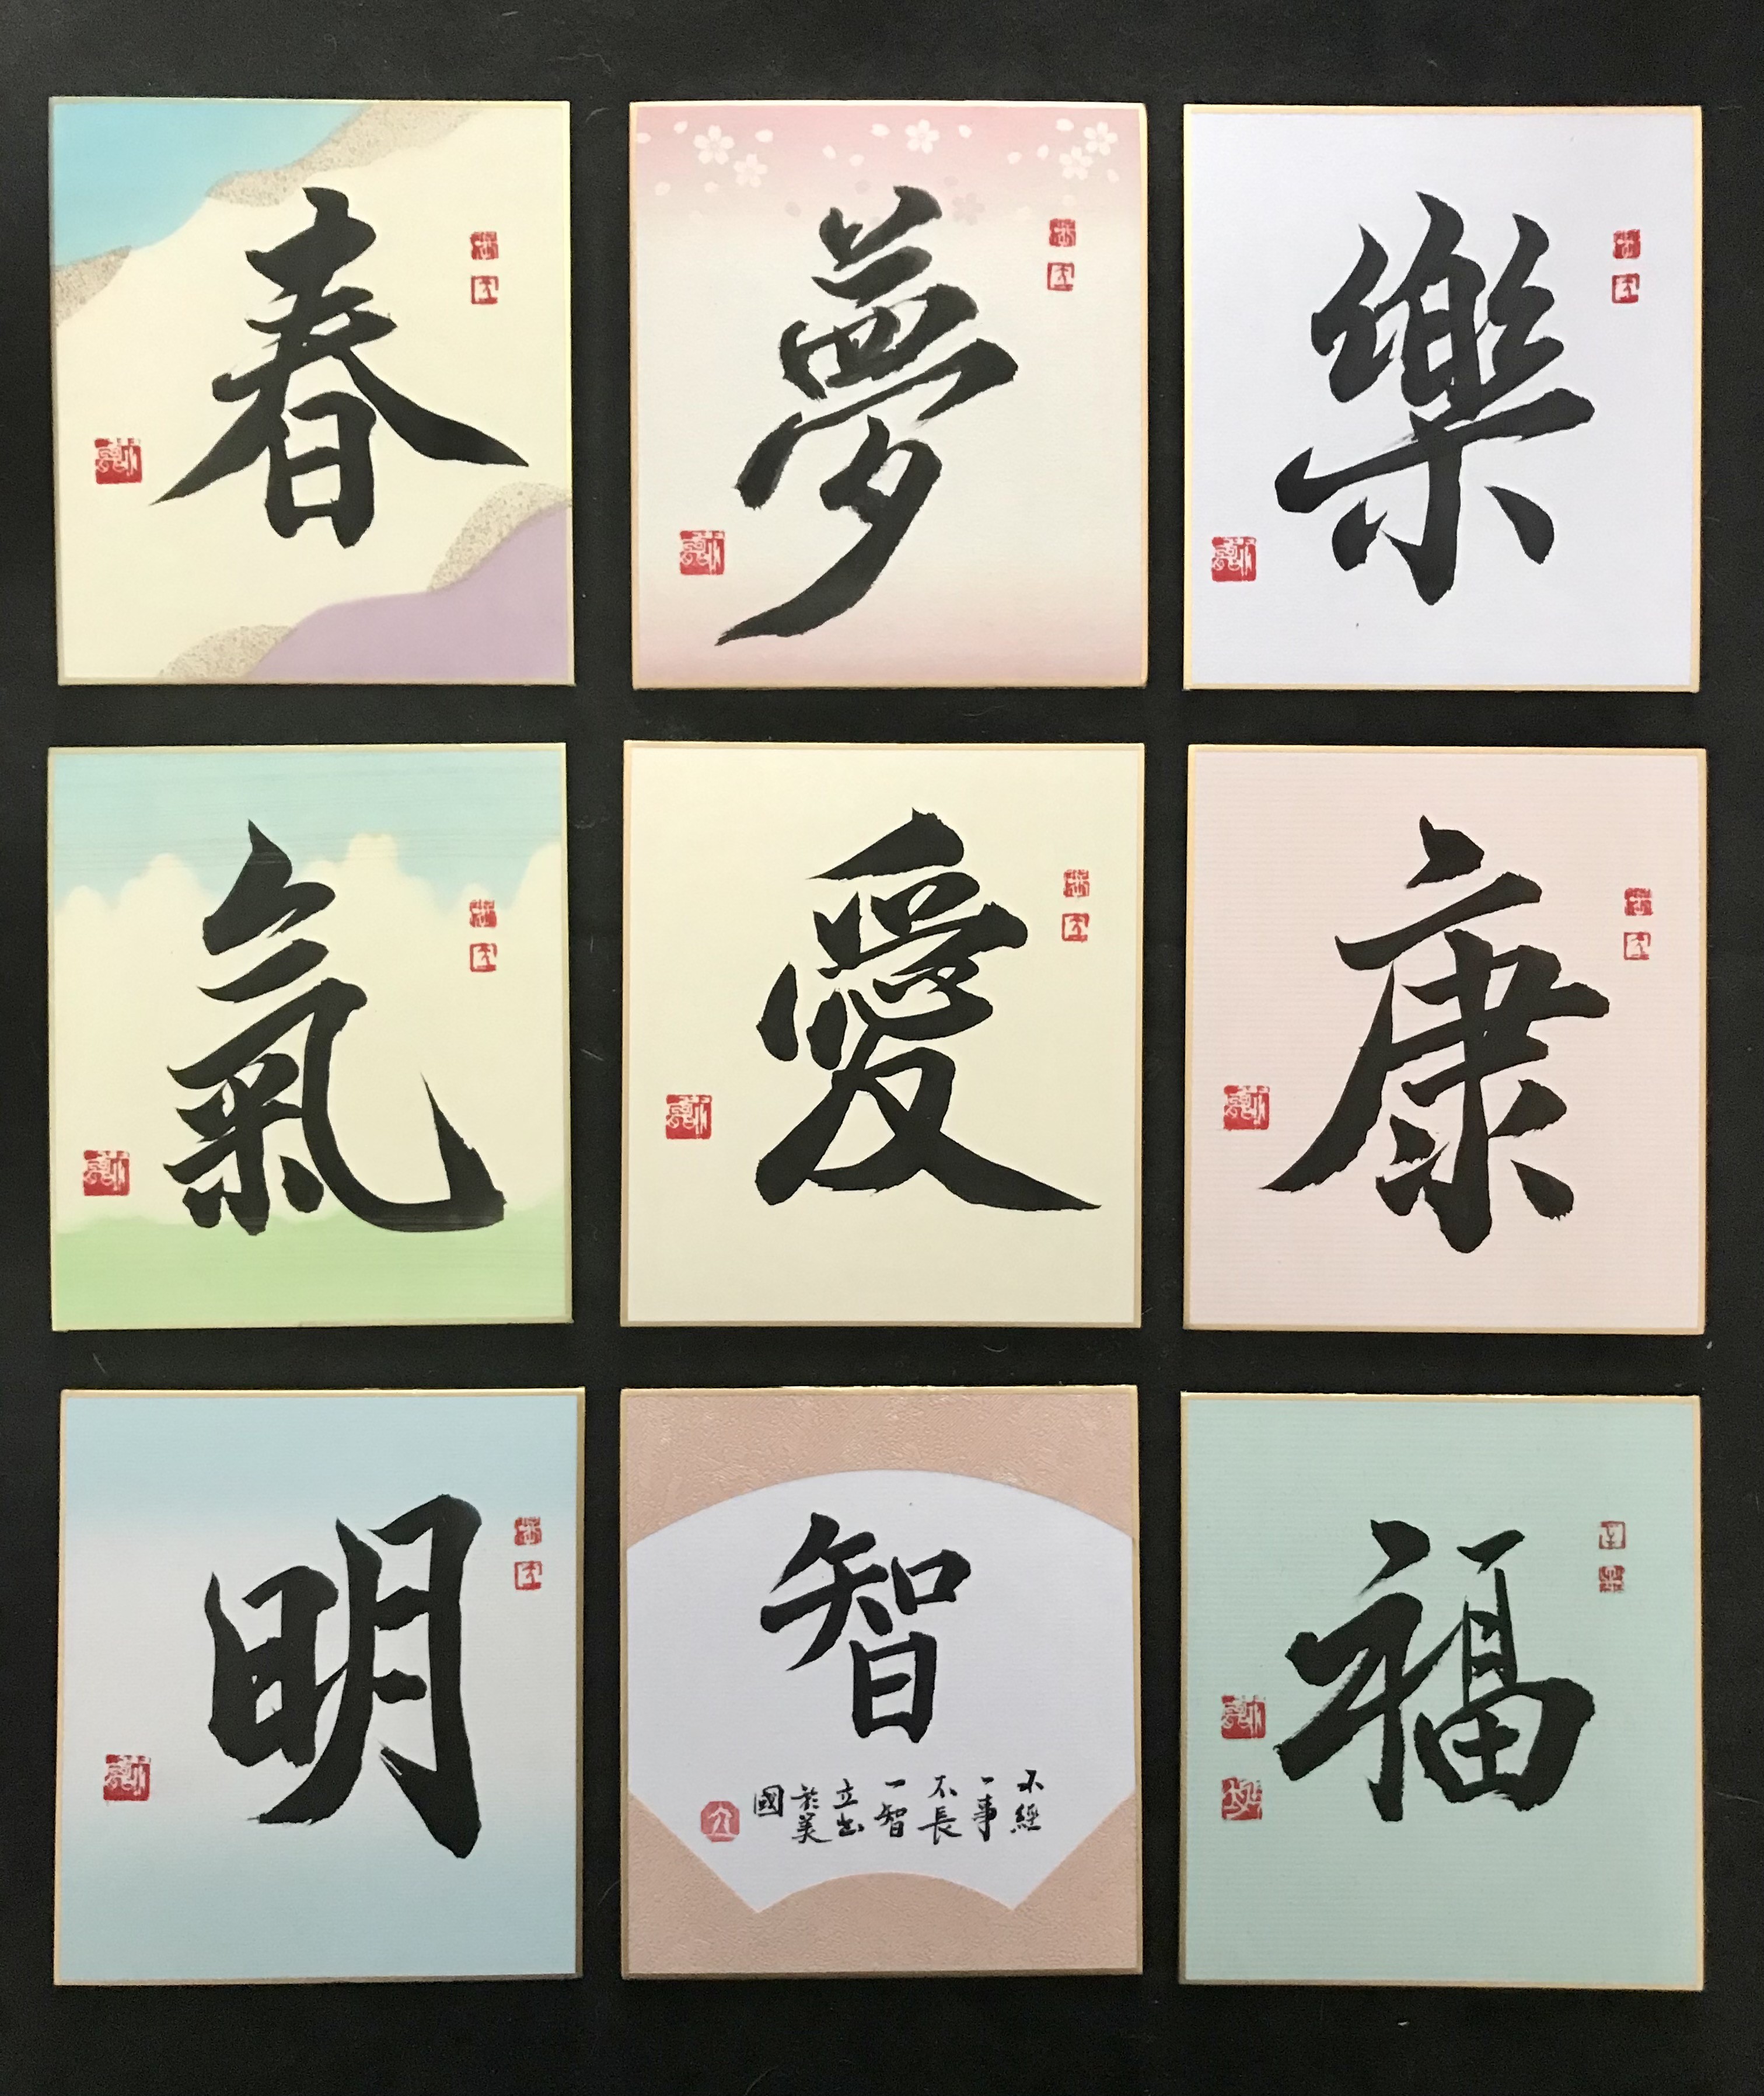 春
夢
樂
氣
愛
康
明
智
不經
一事
不長
一智
立出
於美
國
福